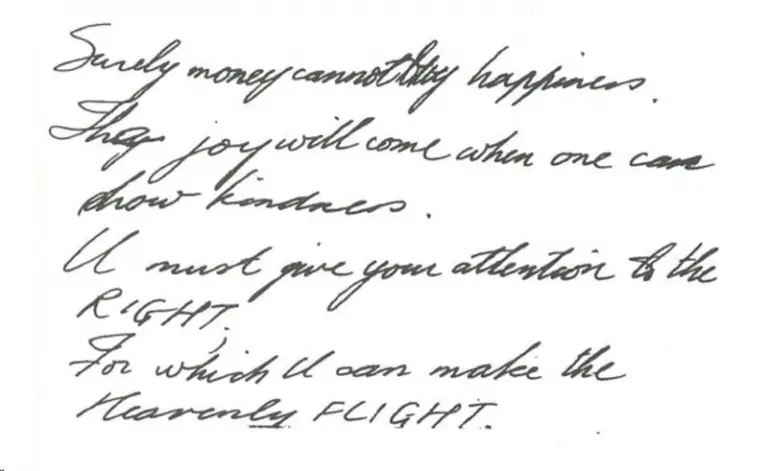 Surely money cannot buy happiness.
The joy will come when one can
show kindness.
U must give your attention to the
RIGHT,
For which U can make the
Heavenly FLIGHT.